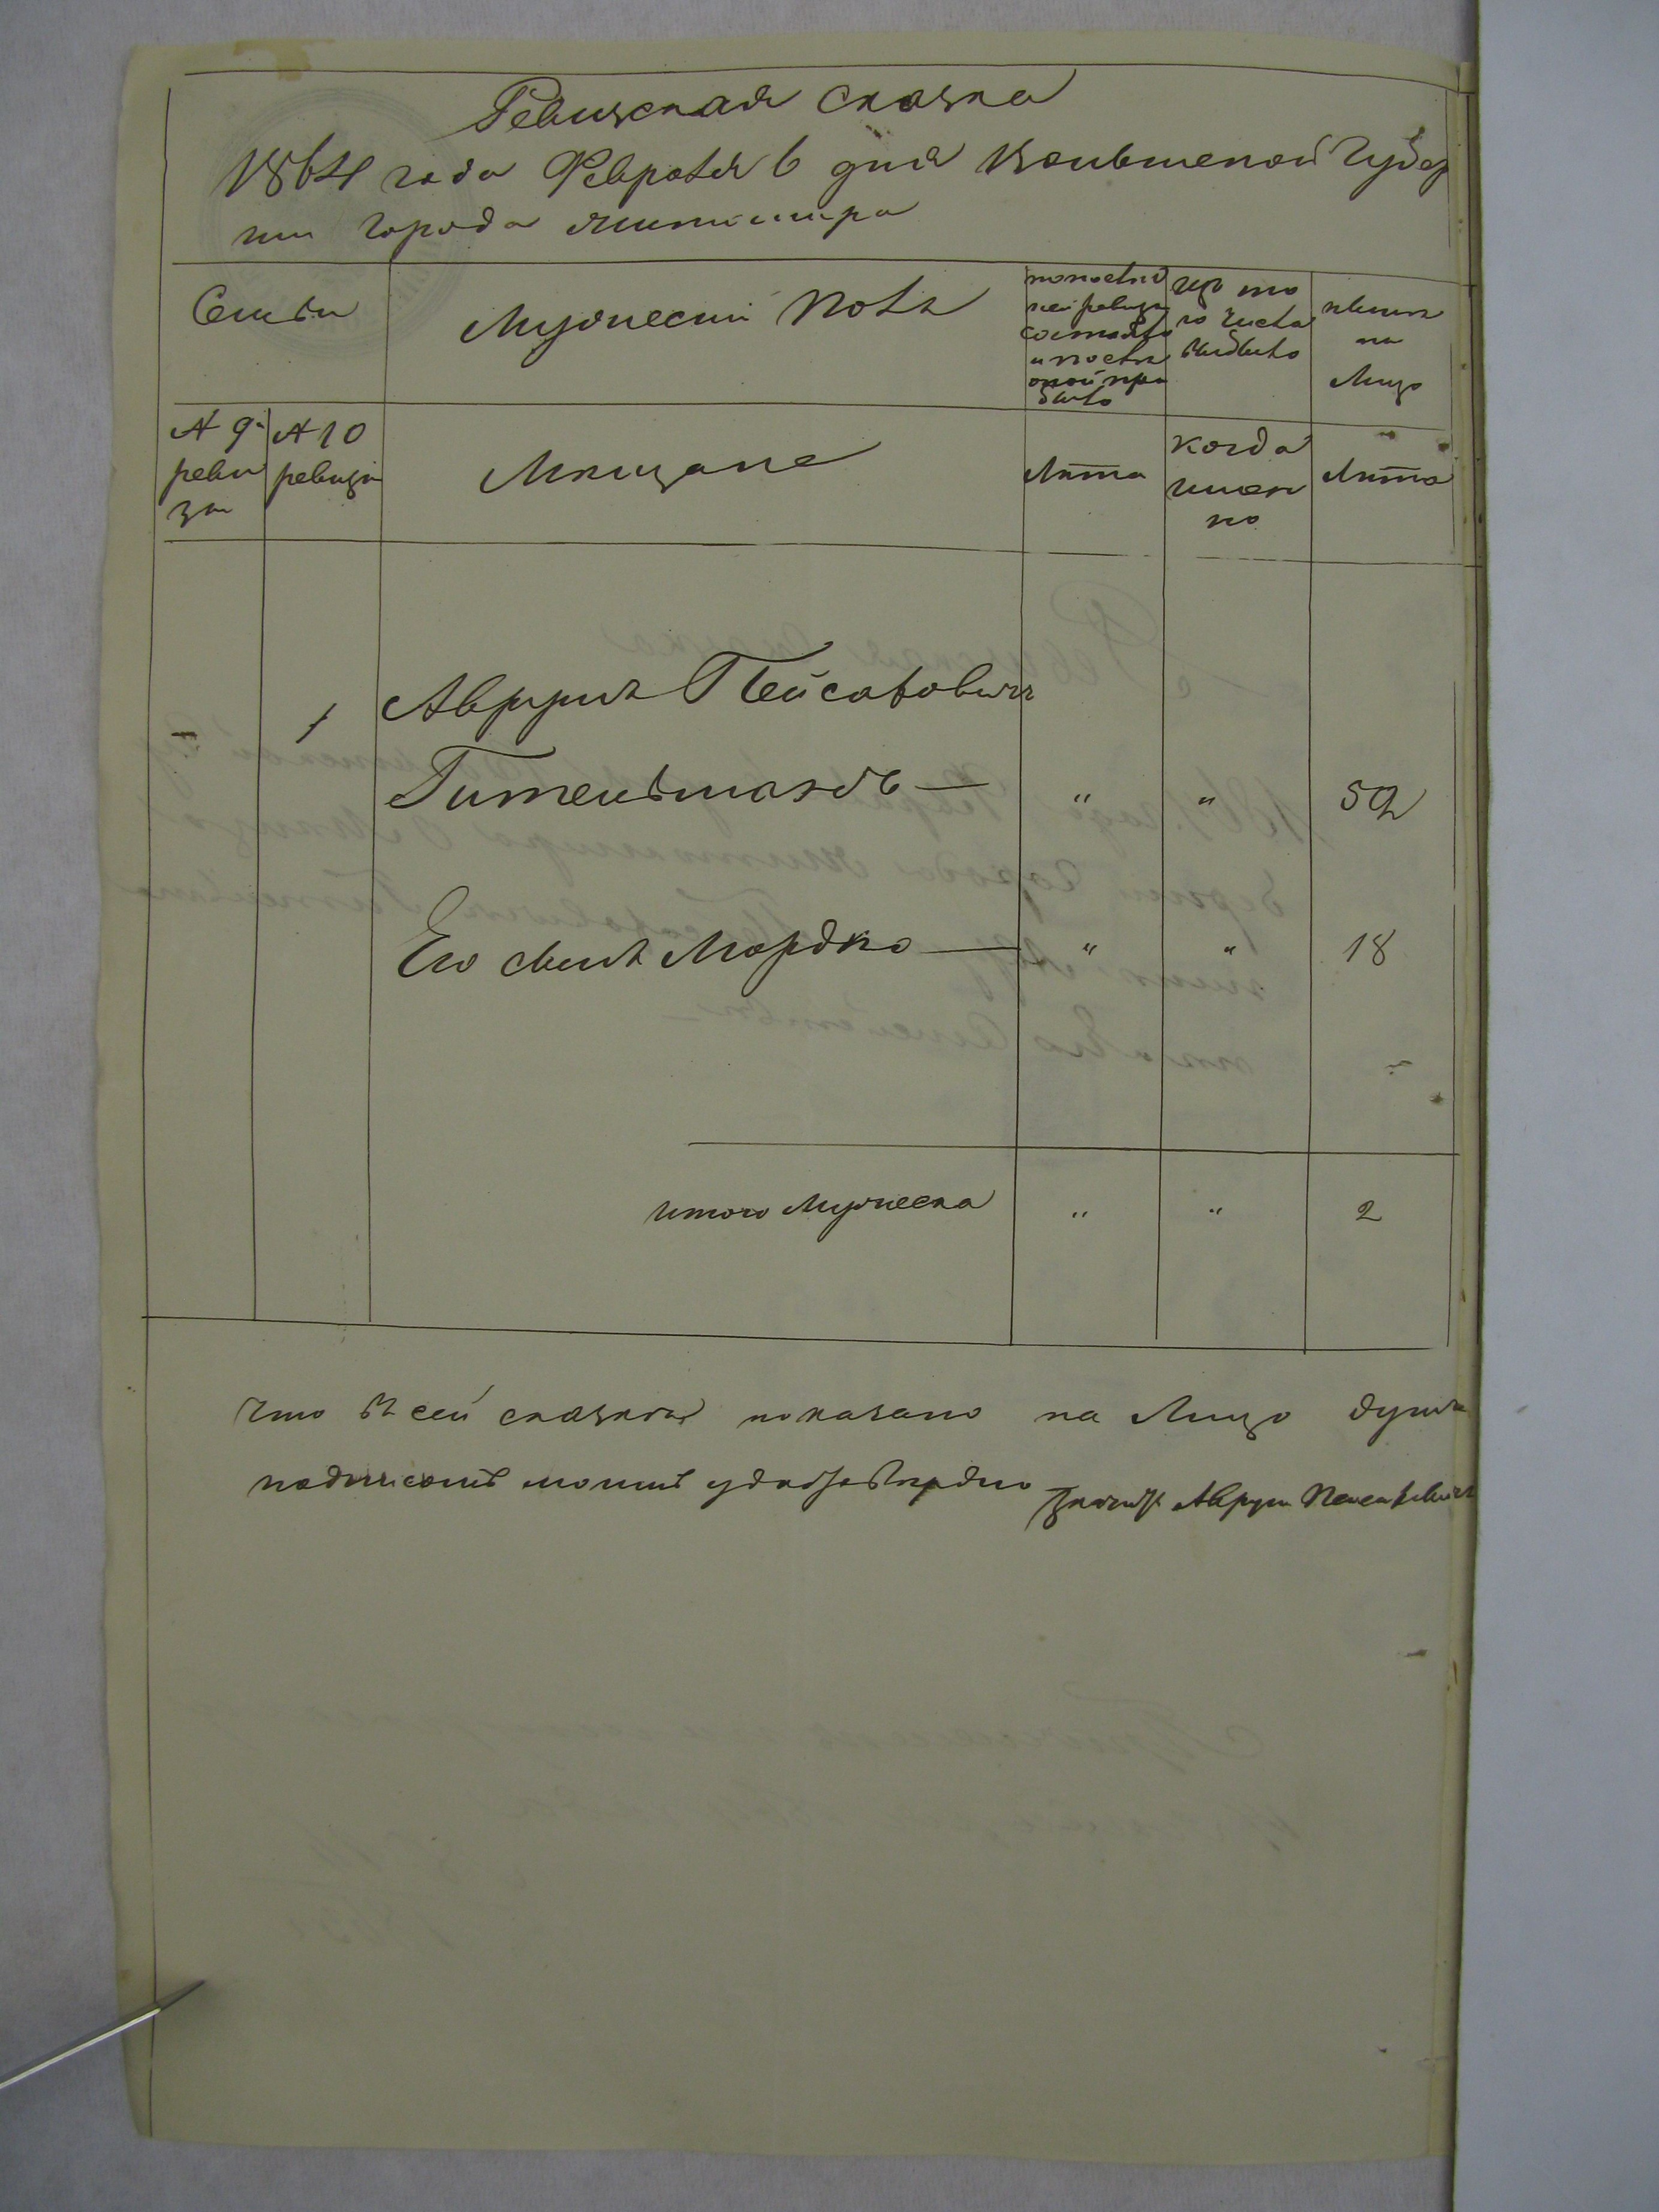 Ревизская сказка
1864 года Февраля 6 дня Волынской Губер
нии города Житомира
Семьи
Мужеский Полъ
по послѣд
ней ревизіи
состояло
и послѣ
оной при
было
изъ то
го числа
выбыло
нынѣ
на
Лицо
№ 9й
реви
зіи
№ 10
ревизіи
Мѣщане
Лѣта
когда
имен
но
Лѣта
1 Аврумъ Пейсаховичъ
Гительмахъ — " " 59
Его сынъ Мордко — " " 18
итого Мужеска " " 2
Что въ сей сказкѣ показано на Лицо душъ
Аврумъ Пейсаховичъ